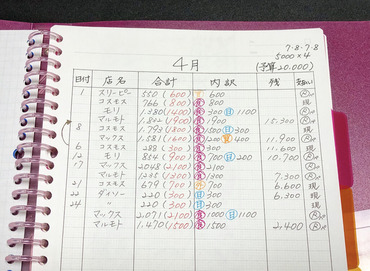 7・8・7・8
5000×4
4月 (予算20.000)
日付 店名 合計 内訳 残 支払い
1 スリーピー 550 (600) 600
コスモス 766 (800) 食 800 現
モリ 1.380 (1400) 食 300 日 1100
マルモト 1.832 (1900) 食 1900 15.300
8 コスモス 1.793 (1800) 食 1500 日 300 現
マックス 1.581 (1600) 食 1200 400 11.900
6 コスモス 288 (300) 食 300 11.600 現
12 モリ 854 (900) 食 700 日 200 10.700
17 マックス 2048 (2100) 食 2100
マルモト 1235 (1300) 食 1300 7.300
21 コスモス 679 (700) 700 6.600 現
22 ダイソー 220 (300) 日 300 6.300 現
24 〃 220 (300) 日 300
マックス 2.071 (2100) 食 1000 日 1100
マルモト 1.470 (1500) 食 1500 2,400